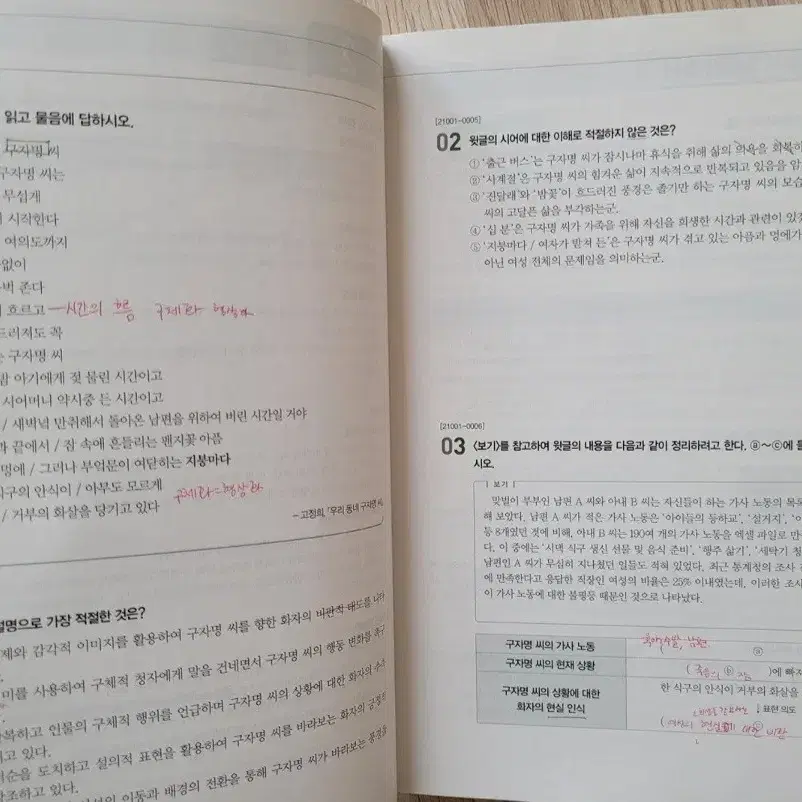 읽고 물음에 답하시오.
구자명 씨
구자명 씨는
무섭게
시작한다
여의도까지
없이
벅 존다
흐르고 ― 시간의 흐름 구체화 형상화
드러져도 꼭
는 구자명 씨
밤 아기에게 젖 물린 시간이고
시어머니 약시중 든 시간이고
/ 새벽녘 만취해서 돌아온 남편을 위하여 버린 시간일 거야
과 끝에서 / 잠 속에 흔들리는 팬지꽃 아픔
멍에 / 그러나 부엌문이 여닫히는 지붕마다
식구의 안식이 / 아무도 모르게
구체화=형상화
/ 거부의 화살을 당기고 있다
- 고정희, 「우리 동네 구자명 씨
설명으로 가장 적절한 것은?
제와 감각적 이미지를 활용하여 구자명 씨를 향한 화자의 비판적 태도를 나타
미를 사용하여 구체적 청자에게 말을 건네면서 구자명 씨의 행동 변화를 촉구
복하고 인물의 구체적 행위를 언급하며 구자명 씨의 상황에 대한 화자의 수
고 있다.
어순을 도치하고 설의적 표현을 활용하여 구자명 씨를 바라보는 화자의 긍정적
조하고 있다.
이동과 배경의 전환을 통해 구자명 씨가 바라보는 풍경을
[21001-0005]
02 윗글의 시어에 대한 이해로 적절하지 않은 것은?
① '출근 버스'는 구자명 씨가 잠시나마 휴식을 취해 삶의 의욕을 회복하
② '사계절'은 구자명 씨의 힘겨운 삶이 지속적으로 반복되고 있음을 암
③ '진달래'와 '밤꽃'이 흐드러진 풍경은 졸기만 하는 구자명 씨의 모습
씨의 고달픈 삶을 부각하는군.
④ '십 분'은 구자명 씨가 가족을 위해 자신을 희생한 시간과 관련이 있겠
⑤ '지붕마다 / 여자가 받쳐 든'은 구자명 씨가 겪고 있는 아픔과 멍에가
아닌 여성 전체의 문제임을 의미하는군.
[21001-0006]
03 <보기>를 참고하여 윗글의 내용을 다음과 같이 정리하려고 한다. ⓐ~ⓒ에 들
시오.
보기
맞벌이 부부인 남편 A 씨와 아내 B 씨는 자신들이 하는 가사 노동의 목록
해 보았다. 남편 A 씨가 적은 가사 노동은 '아이들의 등하교', '설거지', '
등 8개였던 것에 비해, 아내 B 씨는 190여 개의 가사 노동을 엑셀 파일로 만
다. 이 중에는 '시댁 식구 생신 선물 및 음식 준비', '행주 삶기', '세탁기 청
남편인 A 씨가 무심히 지나쳤던 일들도 적혀 있었다. 최근 통계청의 조사
에 만족한다고 응답한 직장인 여성의 비율은 25% 이내였는데, 이러한 조사
이 가사 노동에 대한 불평등 때문인 것으로 나타났다.
구자명 씨의 가사 노동
남편
ⓐ
구자명 씨의 현재 상황
( 죽음의 잠 ⓑ )에 빠지
구자명 씨의 상황에 대한
화자의 현실 인식
한 식구의 안식이 거부의 화살을
↓ 표현 의도
( 여성의 현실에 대한 비판 ⓒ